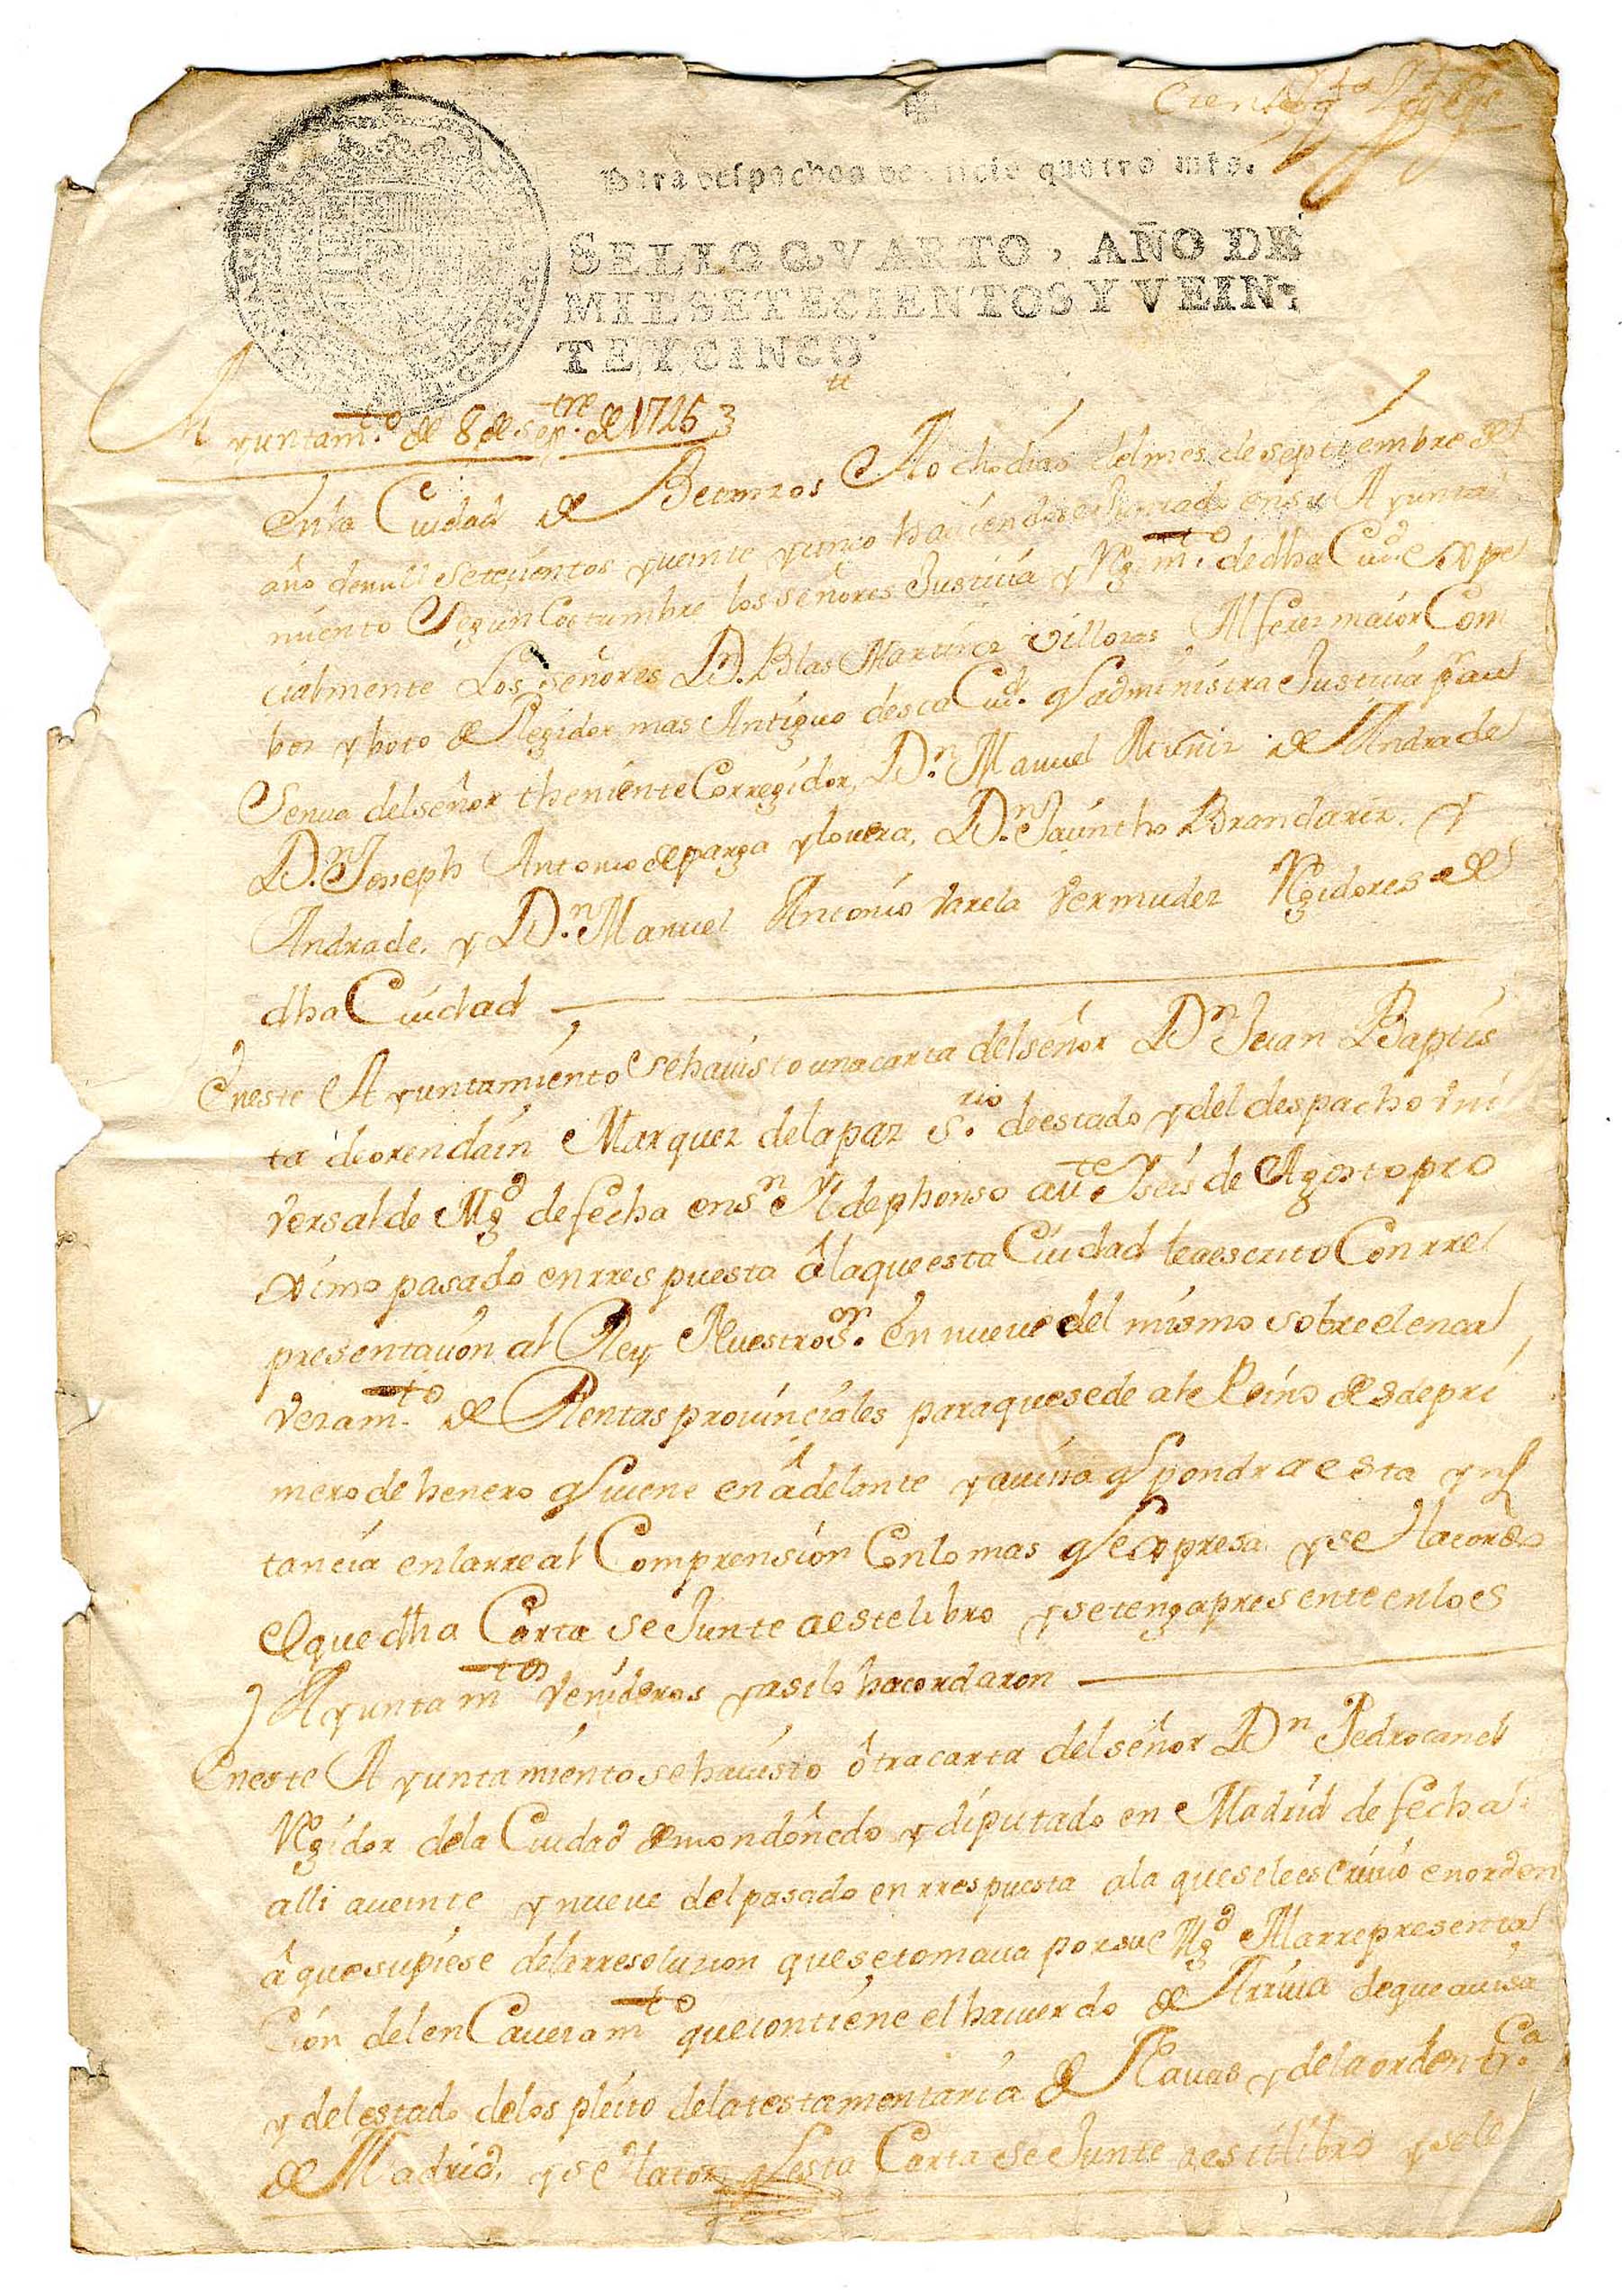 Para despachos de oficio quatro mrs.
SELLO QVARTO, AÑO DE
MIL SETECIENTOS Y VEIN-
TE Y CINCO.
Ayuntam.to de 8 de sep.tre de 1725
En la Ciudad de Betanzos A ocho dias del mes de septiembre del
año de mill setecientos y veinte y cinco haciendose Juntado en su Ayunta
miento Segun Costumbre los señores Justicia y Rg.mto de dha Ciud. espe
cialmente Los señores Dn. Blas Martinez Villozas Alferez maior Com
boz y boto de Regidor mas Antiguo desta Ciud. q administra Justicia pr au
sencia del señor theniente Corregidor, Dn. Manuel Muñiz de Andrade
Dn. Joseph Antonio de parga y lovera, Dn. Jacintho Brandariz. y
Andrade, y Dn. Manuel Antonio Varela Vermudez Rgidores de
dha Ciudad
En este Ayuntamiento se ha visto una carta del señor Dn Juan Baptis
ta de orendain Marquez de la paz S.rio de estado y del despacho vni
versal de Mgd de fecha en Sn Yldephonso a vte y seis de Agosto pro
ximo pasado en rrespuesta â la que esta Ciudad le a escrito Con rre
presentacion al Rey Nuestro Sor. en nueve del mismo sobre el enca
vezam.to de Rentas provinciales para que se de a te Reino desde pri
mero de henero q viene en adelante y avisa q pondra esta yns
tancia en la rreal Comprension Con lo mas q expresa y se Hacordo
el que dha Carta se Junte a este libro y se tenga presente en los
Ayuntam.tos venideros y asi lo hacordaron
En este Ayuntamiento se ha visto ôtra carta del señor Dn Pedro canel
Rgidor de la Ciudad de mondoñedo y diputado en Madrid de fecha
alli a veinte y nueve del pasado en rrespuesta a la que se le escrivió en orden
â que supiese de la rresoluzion que se tomava por su Mgd A la rrepresenta
Cion del en Cavezam.to que contiene el hacuerdo de Arriva de que avisa
y del estado de los pleito de la testamentaria de Navas y de la orden tr.ca
de Madrid, y se Hacor q esta Carta se Junte a este libro y se le